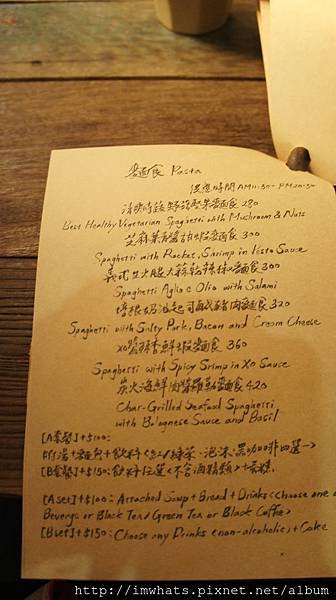 麵食 Pasta
供應時間AM11:30~PM20:30
清爽時蔬野菇堅果麵食280
Best Healthy Vegetarian Spaghetti with Mushroom & Nuts
芝麻葉青醬甜蝦麵食300
Spaghetti with Rocket, Shrimp in Pesto Sauce
義式生火腿大蒜乾辣椒麵食300
Spaghetti Aglio e Olio with Salami
培根奶油起司鹹豬肉麵食320
Spaghetti with Salty Pork, Bacon and Cream Cheese
XO醬辣香鮮蝦麵食 360
Spaghetti with Spicy Srimp in Xo Sauce
炭火海鮮肉醬羅勒麵食420
Char-Grilled Seafood Spaghetti
with Bolognese Sauce and Basil
[A套餐]+$100:
附湯+麵包+飲料<紅/綠茶、泡沫、黑咖啡 四選一>
[B套餐]+$150: 飲料任選<不含酒精類>+蛋糕
[A set]+$100: Attached Soup + Bread + Drinks<Choose one
Beverge or Black Tea/Green Tea or Black Coffee>
[B set]+$150: Choose any Drinks <non-alcoholic> + Cake
http://imwhats.pixnet.net/album